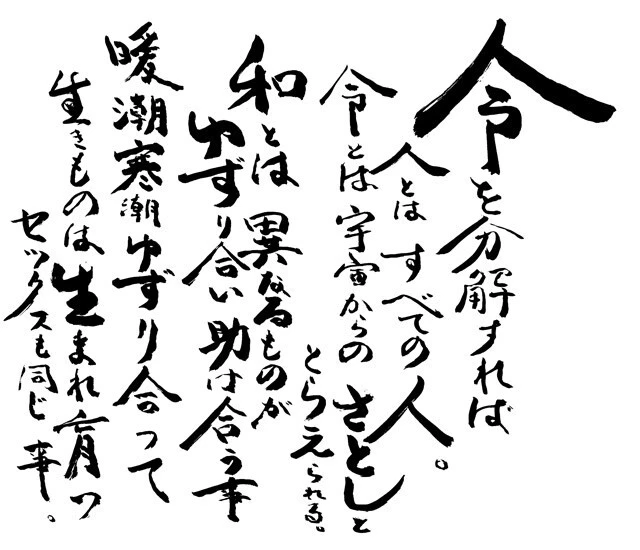 令を分解すれば
人とはすべての人。
令とは宇宙からのさとしと
とらえられる。
和とは異なるものが
ゆずり合い助け合う事
暖潮寒潮ゆずり合って
生きものは生まれ育つ
セックスも同じ事。